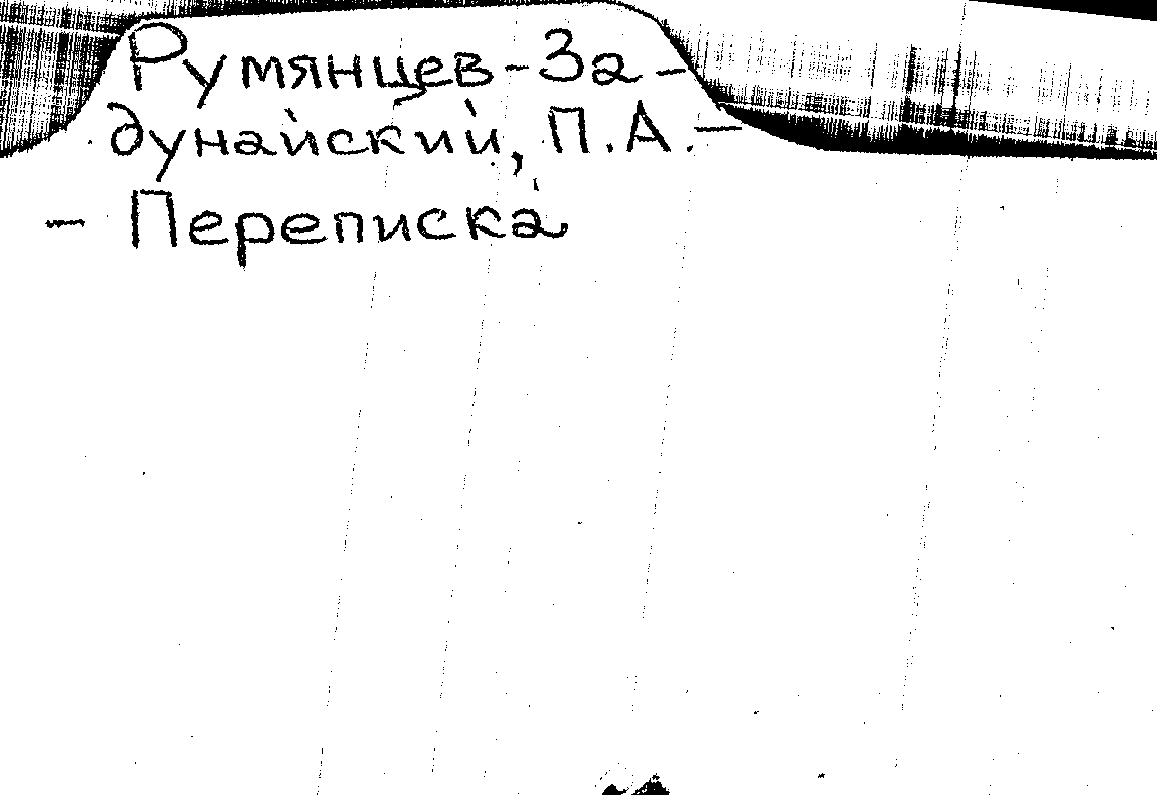 Румянцев-За-
дунайский, П.А.-
- Переписка